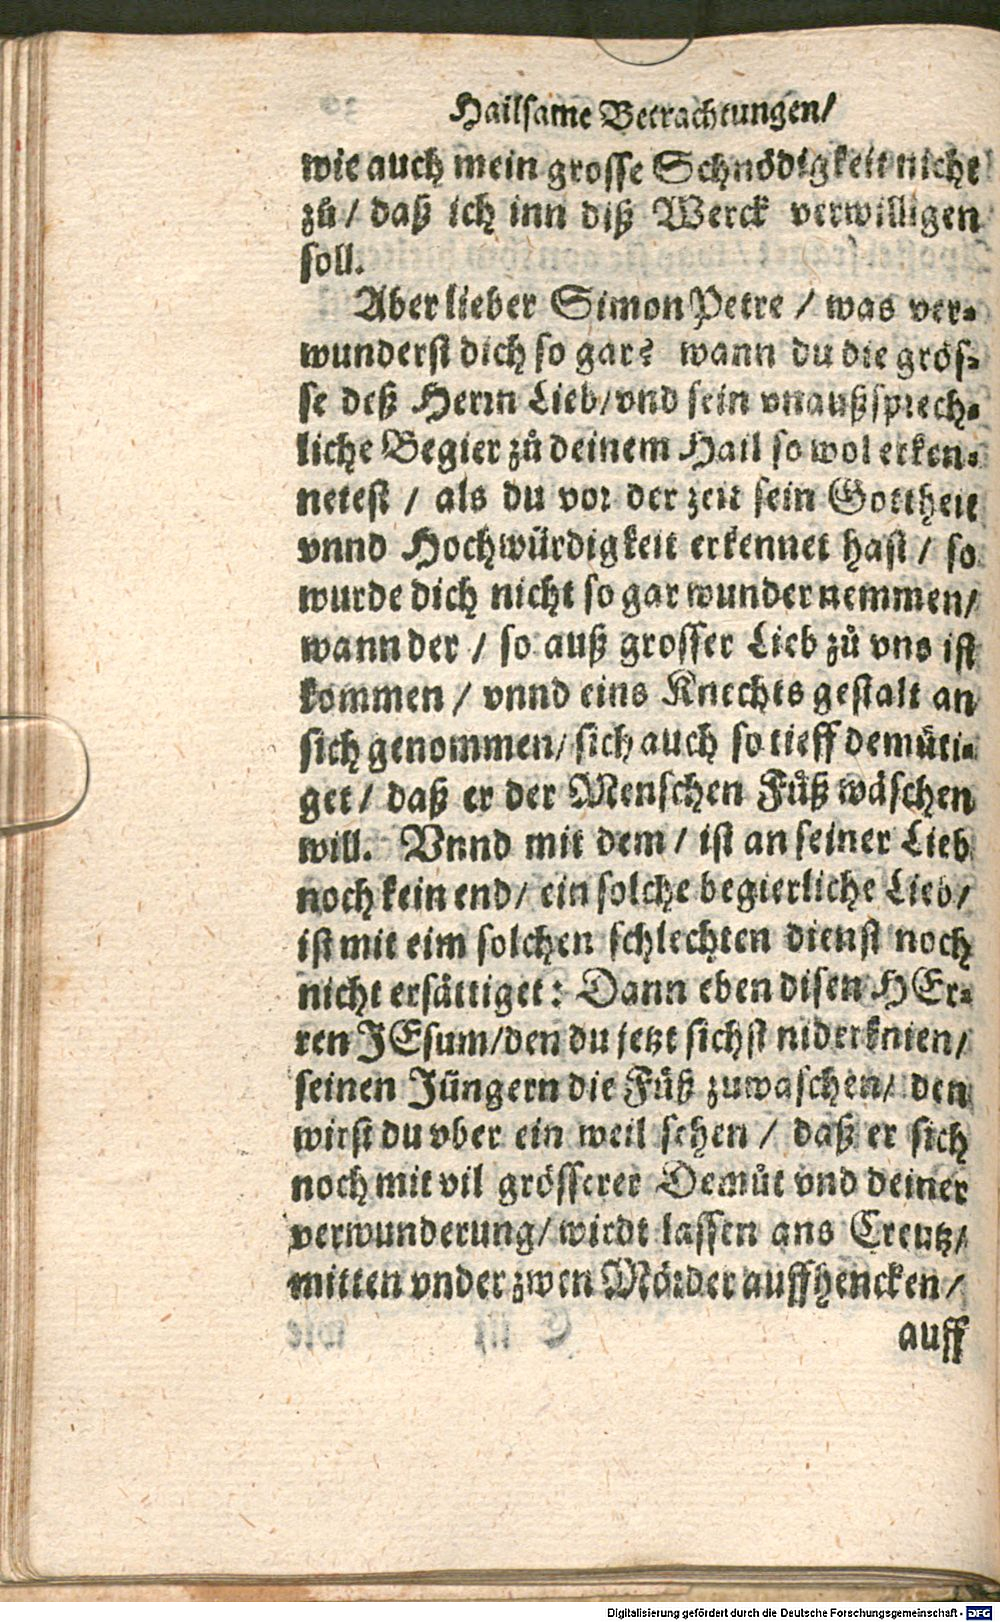 Hailsame Betrachtungen/
wie auch mein grosse Schnödigkeit nicht
zů / daß ich inn diß Werck verwilligen
soll.
Aber lieber Simon Petre / was ver-
wunderst dich so gar? wann du die grös-
se deß Herrn Lieb/vnd sein vnaußsprech-
liche Begier zů deinem Hail so wol erken-
netest / als du vor der zeit sein Gottheit
vnnd Hochwürdigkeit erkennet hast / so
wurde dich nicht so gar wunder nemmen/
wann der / so auß grosser Lieb zů vns ist
kommen / vnnd eins Knechts gestalt an
sich genommen/ sich auch so tieff demüti-
get / daß er der Menschen Füß wäschen
will. Vnnd mit dem / ist an seiner Lieb
noch kein end/ ein solche begierliche Lieb/
ist mit eim solchen schlechten dienst noch
nicht ersättiget: Dann eben disen HEr-
ren JEsum/den du jetzt sichst niderknien/
seinen Jüngern die Füß zuwaschen/ den
wirst du vber ein weil sehen / daß er sich
noch mit vil grösserer Demůt vnd deiner
verwunderung/ wirdt lassen ans Creutz/
mitten vnder zwen Mörder auffhencken/
auff
Digitalisierung gefördert durch die Deutsche Forschungsgemeinschaft - DFG